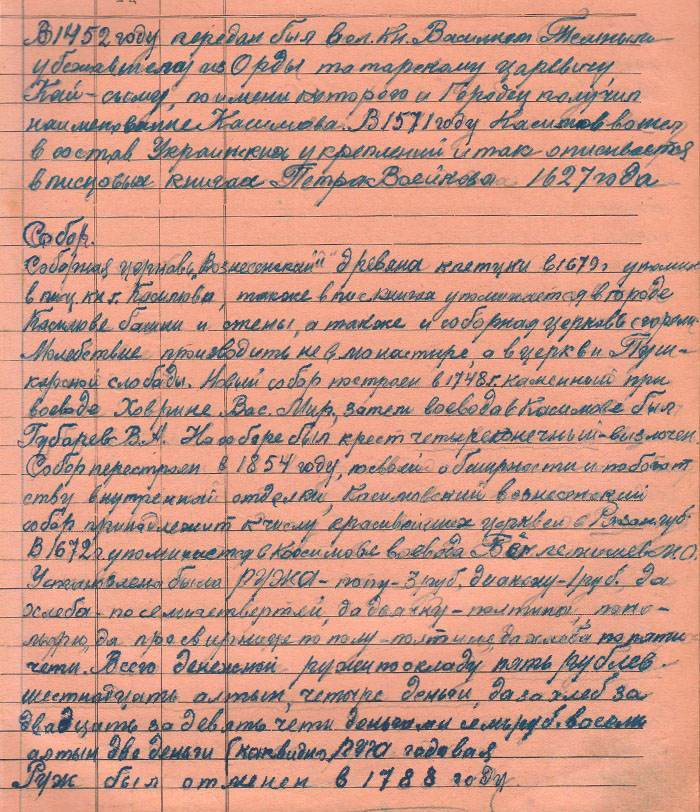 В 1452 году передан был вел. кн. Василием Темным
убежавшему из Орды татарскому царевичу
Кай-сыму, по имени которого и Городец получил
наименование Касимова. В 1571 году Касимов вошел
в состав Украинских укреплений и так описывается
в писцовых книгах Петра Воейкова 1627 года
Собор.
Соборная церковь "Вознесенский" древяна клетцки в 1679 г упомин
в писц. кн г. Касимова, также в пис книгах упоминается в городе
Касимове башни и стены, а также и соборная церковь сгорели
Молебствие производить не в монастыре, а в церкви Пуш-
карской слободы. Новый собор построен в 1748 г. каменный при
воеводе Ховрине Вас. Мир, затем воевода в Касимове был
Губарев В.А. На соборе был крест четыреконечный - вызлочен
Собор перестроен в 1854 году, по своей обширности и по богат
ству внутренной отделки, Касимовский вознесенский
собор принадлежит к числу красивейших церквей в Рязан. губ.
В 1672 г упоминается в Касимове воевода
Установлена была РУЖА - попу - 3 руб. диакону - 1 руб. да
хлеба - по семи четвертей, да дьячку - полтины, поно-
марю, да просвирнице по полу - полтине, да хлеба по пяти
чети. Всего денежной ружи по окладу пять рублев
шестнадцать алтын, четыре деньги, да за хлеб за
двадцать за девять чети деньгами семь руб. восемь
алтын две деньги (как видно РУЖА годовая
Руж был отменен в 1788 году.